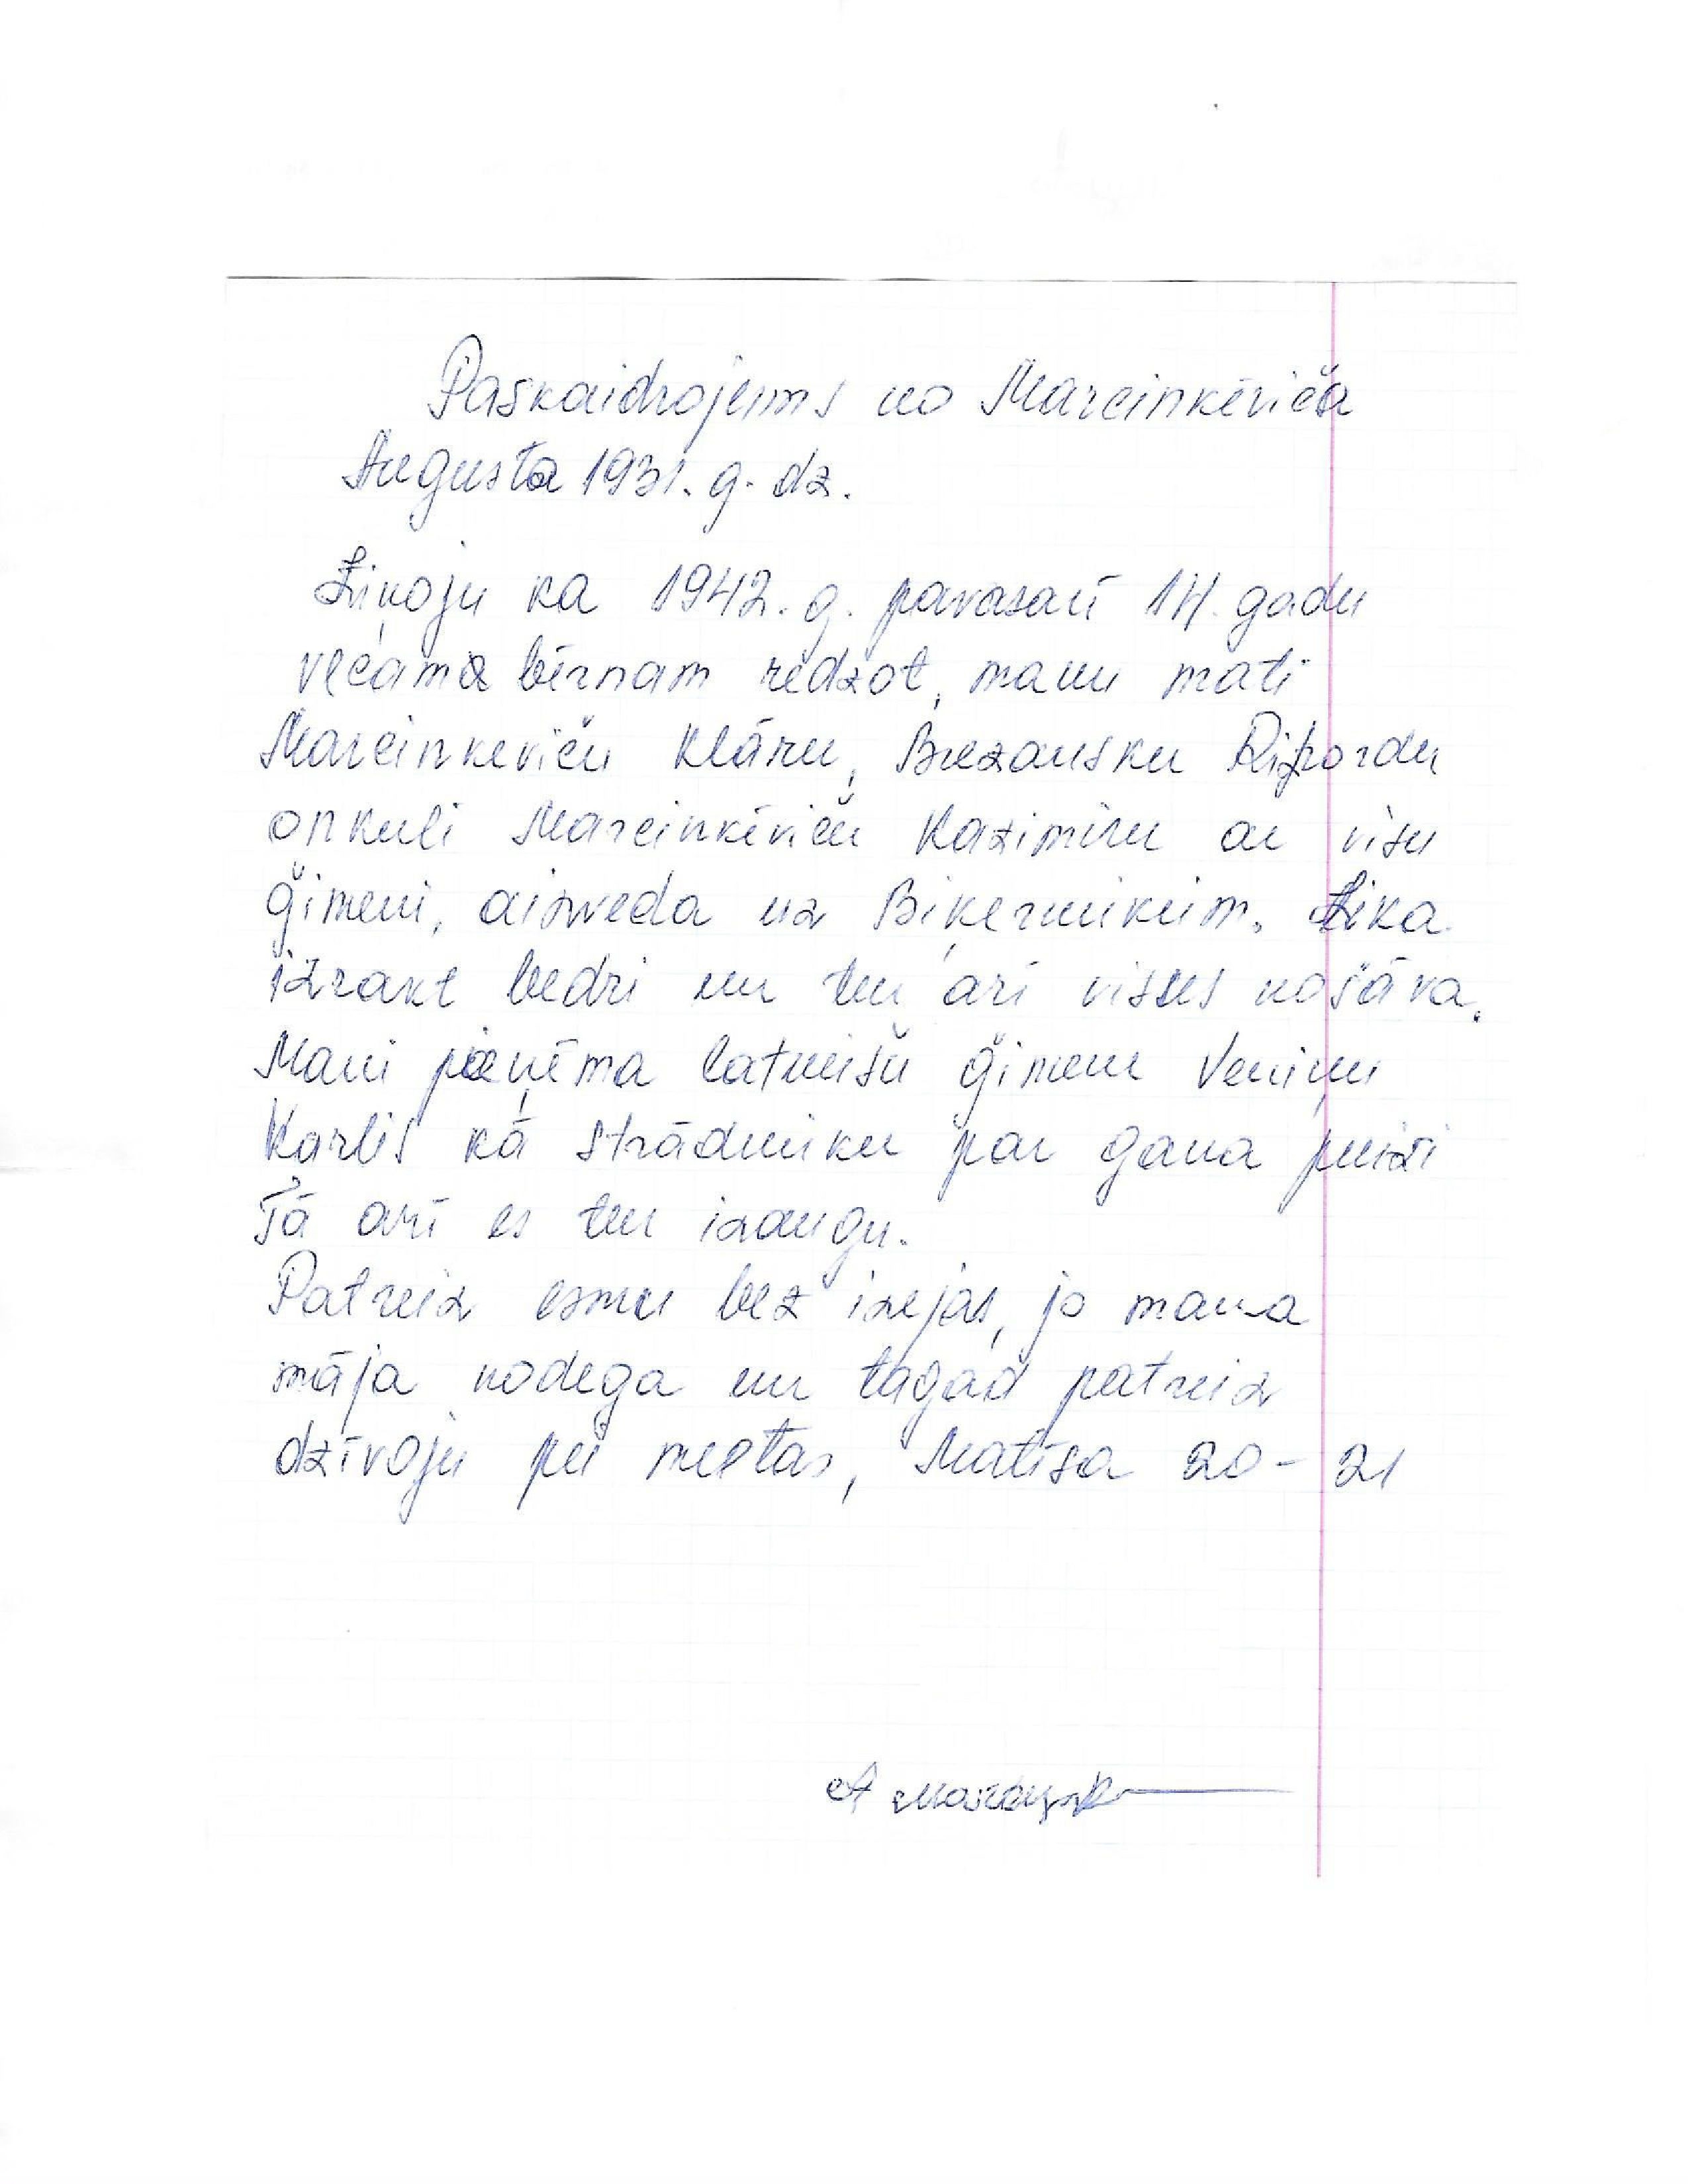 Paskaidrojums no Marcinkēviča
Augusta 1931. g. dz.
Ziņoju ka 1942. g. pavasarī 14. gadu
vecama bērnam redzot, manu māti
Marcinkeviču Klāru, Brezausku
onkuli Marcinkēviču Kazimiru ar visu
ģimeni, aizveda uz Biķerniekiem. Lika
izrakt bedri un tur arī visus nošāva.
Mani pieņēma latviešu ģimene
Karlis kā strādnieku par gana puisi
Tā arī es tur izaugu.
Patreiz esmu bez izejas, jo mana
māja nodega un tagad patreiz
dzīvoju pie meitas, Matīsa 20-21